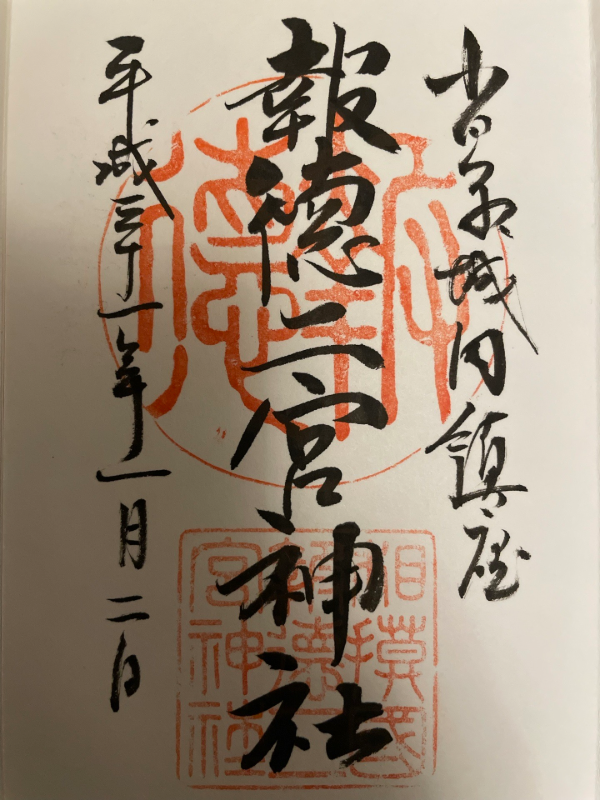 小田原城内鎮座
報徳二宮神社
平成三十一年一月二日
報徳
相模国
報徳二
宮神社